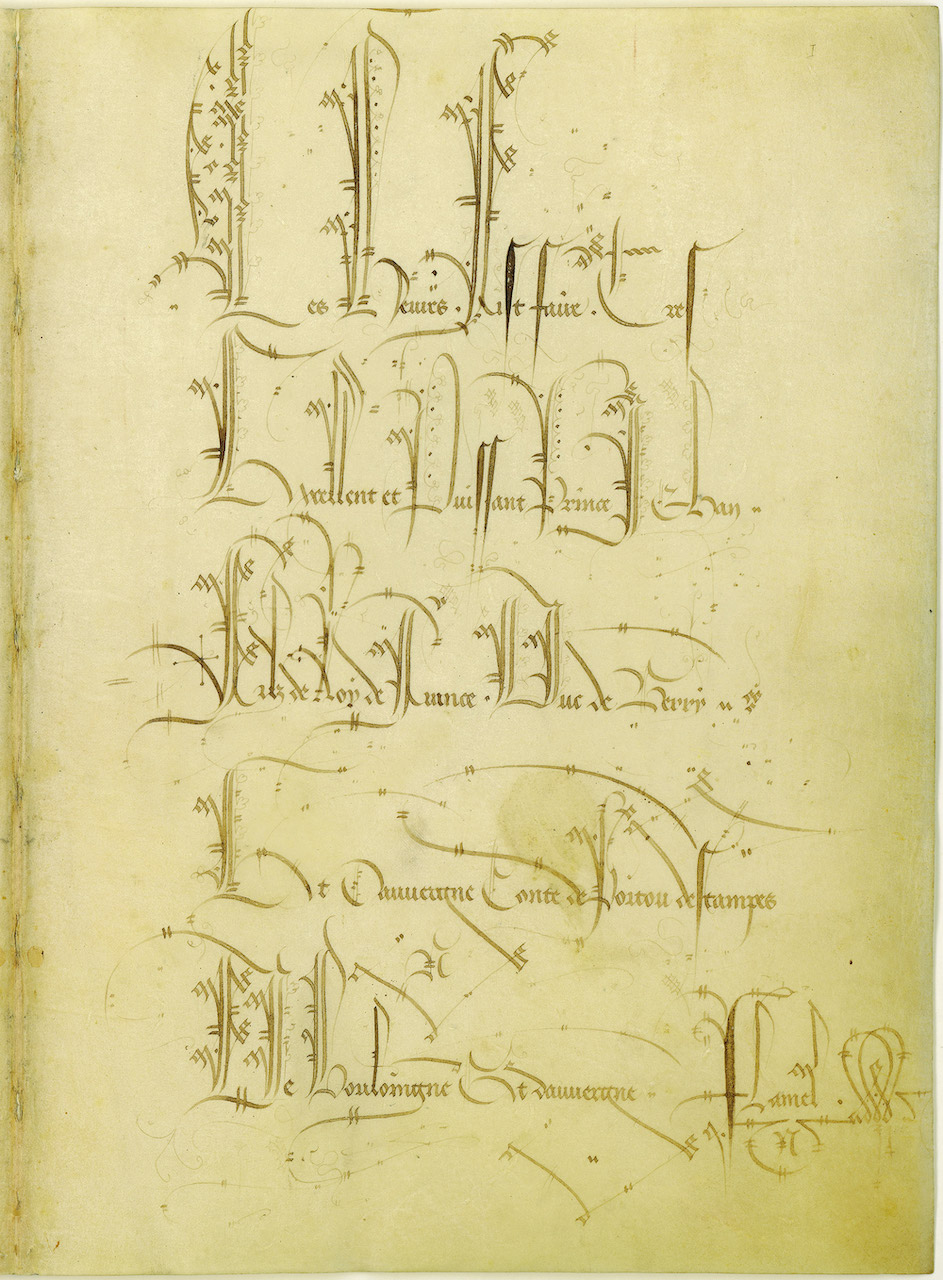 1
Ces Heures . fist faire . Tres
Excellent et Puissant Prince Jehan
Filz de Roy de France . Duc de Berry
Et Dauuergne Conte de Poitou destampes
De Bouloingne Et dauuergne
Flamel .